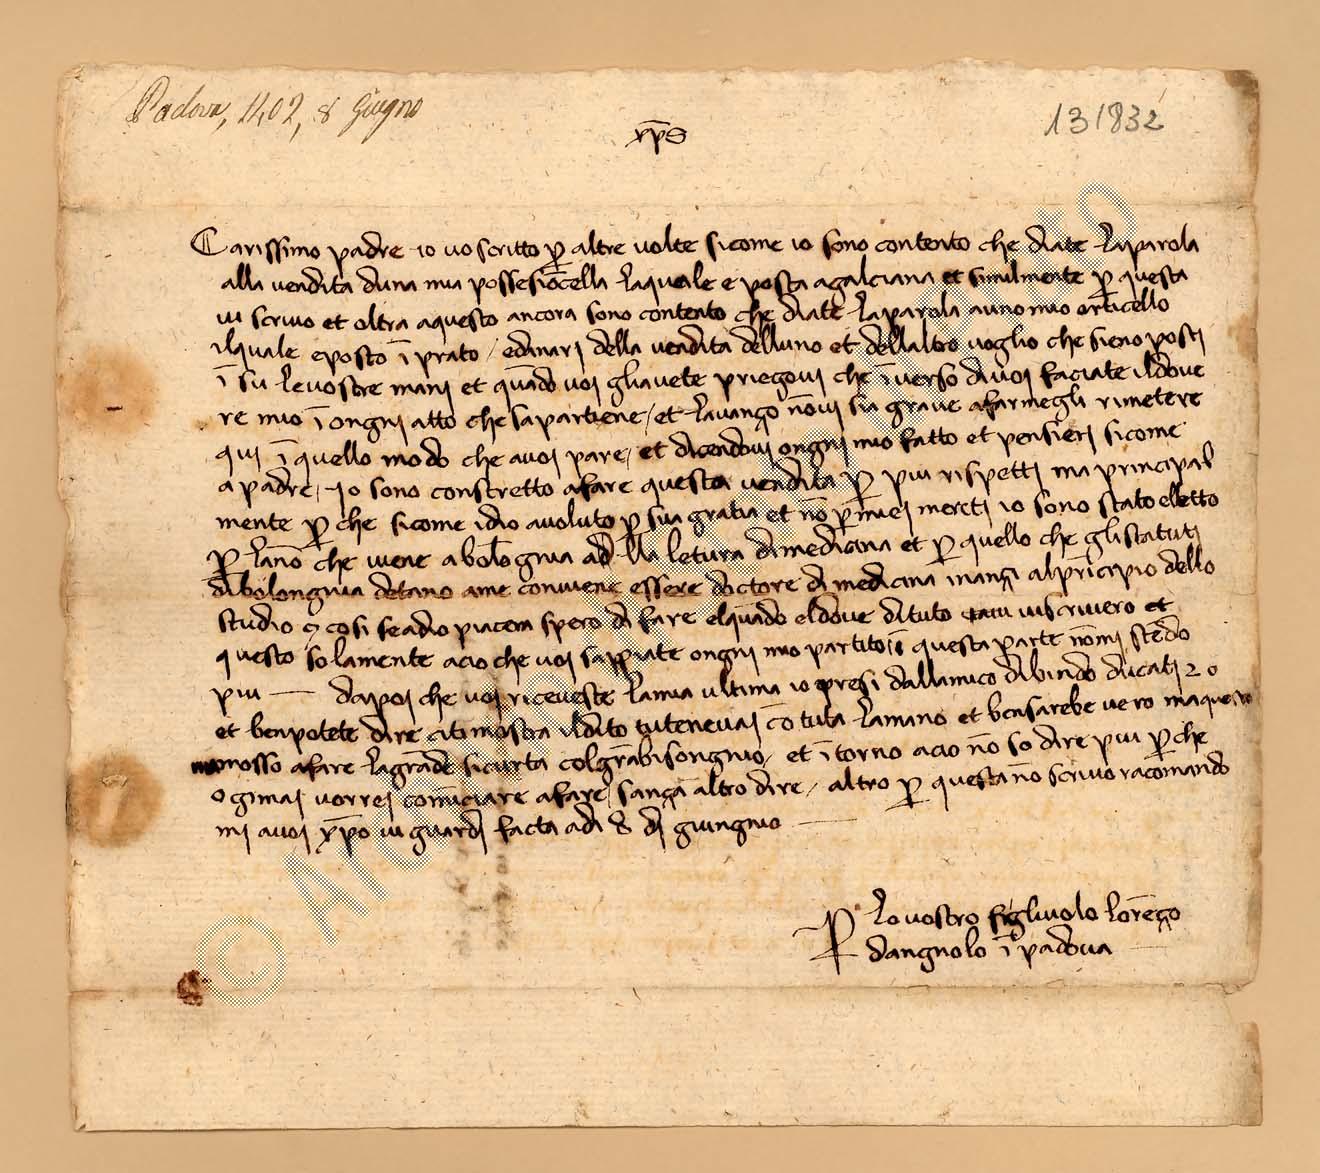 Padova, 1402, 8 Giugno
131832
xp̄s
Carissimo padre io vo scritto p̄ altre volte sicome io sono contento che diate la parola
alla vendita duna mia possesiōcella laquale e posta agalciana et similmente p̄ questa
vi scrivo et oltra aquesto ancora sono contento che diate la parola auno mio orticello
ilquale eposto ī prato / edinari della vendita delluno et dellaltro voglio che sieno posti
ī su le vostre mani et quādo voi gliavete priegovi che īverso di voi faciate il dove
re mio ī ongni atto che sapartiene / et lavanço nōvi sia grave afarmegli rimetere
qui ī quello modo che avoi pare / et dicendovi ongni mio fatto et pensieri sicome
a padre / Io sono constretto afare questa vendita p̄ piu rispetti ma principal
mente p̄ che sicome idio avoluto p̄ sua gratia et nō p̄ miei meriti io sono stato eletto
p̄ lāno che viene a bolongnia ad lla letura di medicina et p̄ quello che gli statuti
di bolongnia detano ame conviene essere doctore di medicina inançi al prīcipio dello
studio & cosi se adio piacera spero di fare el quādo el dove di tuto viscrivero et
questo solamente acio che voi sappiate ongni mio partito / ī questa parte nōmi stēdo
piu — dapoi che voi riceveste la mia ultima io presi dallamico di bindo ducati 20
et ben potete dire citimostra il dito tu tenevai cō tuta la mano et ben sarebe vero ma questo
mosso afare la grāde sicurta col grā bisongnio / et ī torno acio nō so dire piu p̄ che
ogimai vorrei comīciare afare / sança altro dire / altro p̄ questa nō scrivo racomando
mi avoi xp̄o vi guardi facta adi 8 di giungnio —
p̄ lo vostro figliuolo lorenço
dangnolo ī padova
© Arc